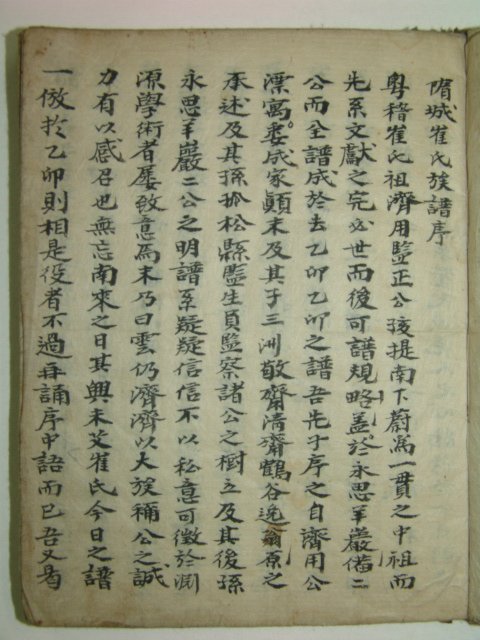 隋城崔氏族譜序
粤稽崔氏祖濟用監正公孩提南下蔚爲一貫之中祖而
先系文獻之完必世而後可譜規略盖於永思羊巖備二
公而全譜成於去乙卯乙卯之譜吾先子序之自濟用公
漂寓娶成家顚末及其子三洲敬齋淸齋鶴谷逸翁原之
承述及其孫孤松縣監生員監察諸公之樹立及其後孫
永思羊巖二公之明譜系疑疑信信不以私意可徵於淵
源學術者屢致意焉末乃曰雲仍濟濟以大族稱公之誠
力有以感召也無忘南來之日其興未艾崔氏今日之譜
一倣於乙卯則相是役者不過再誦序中語而已吾又曷